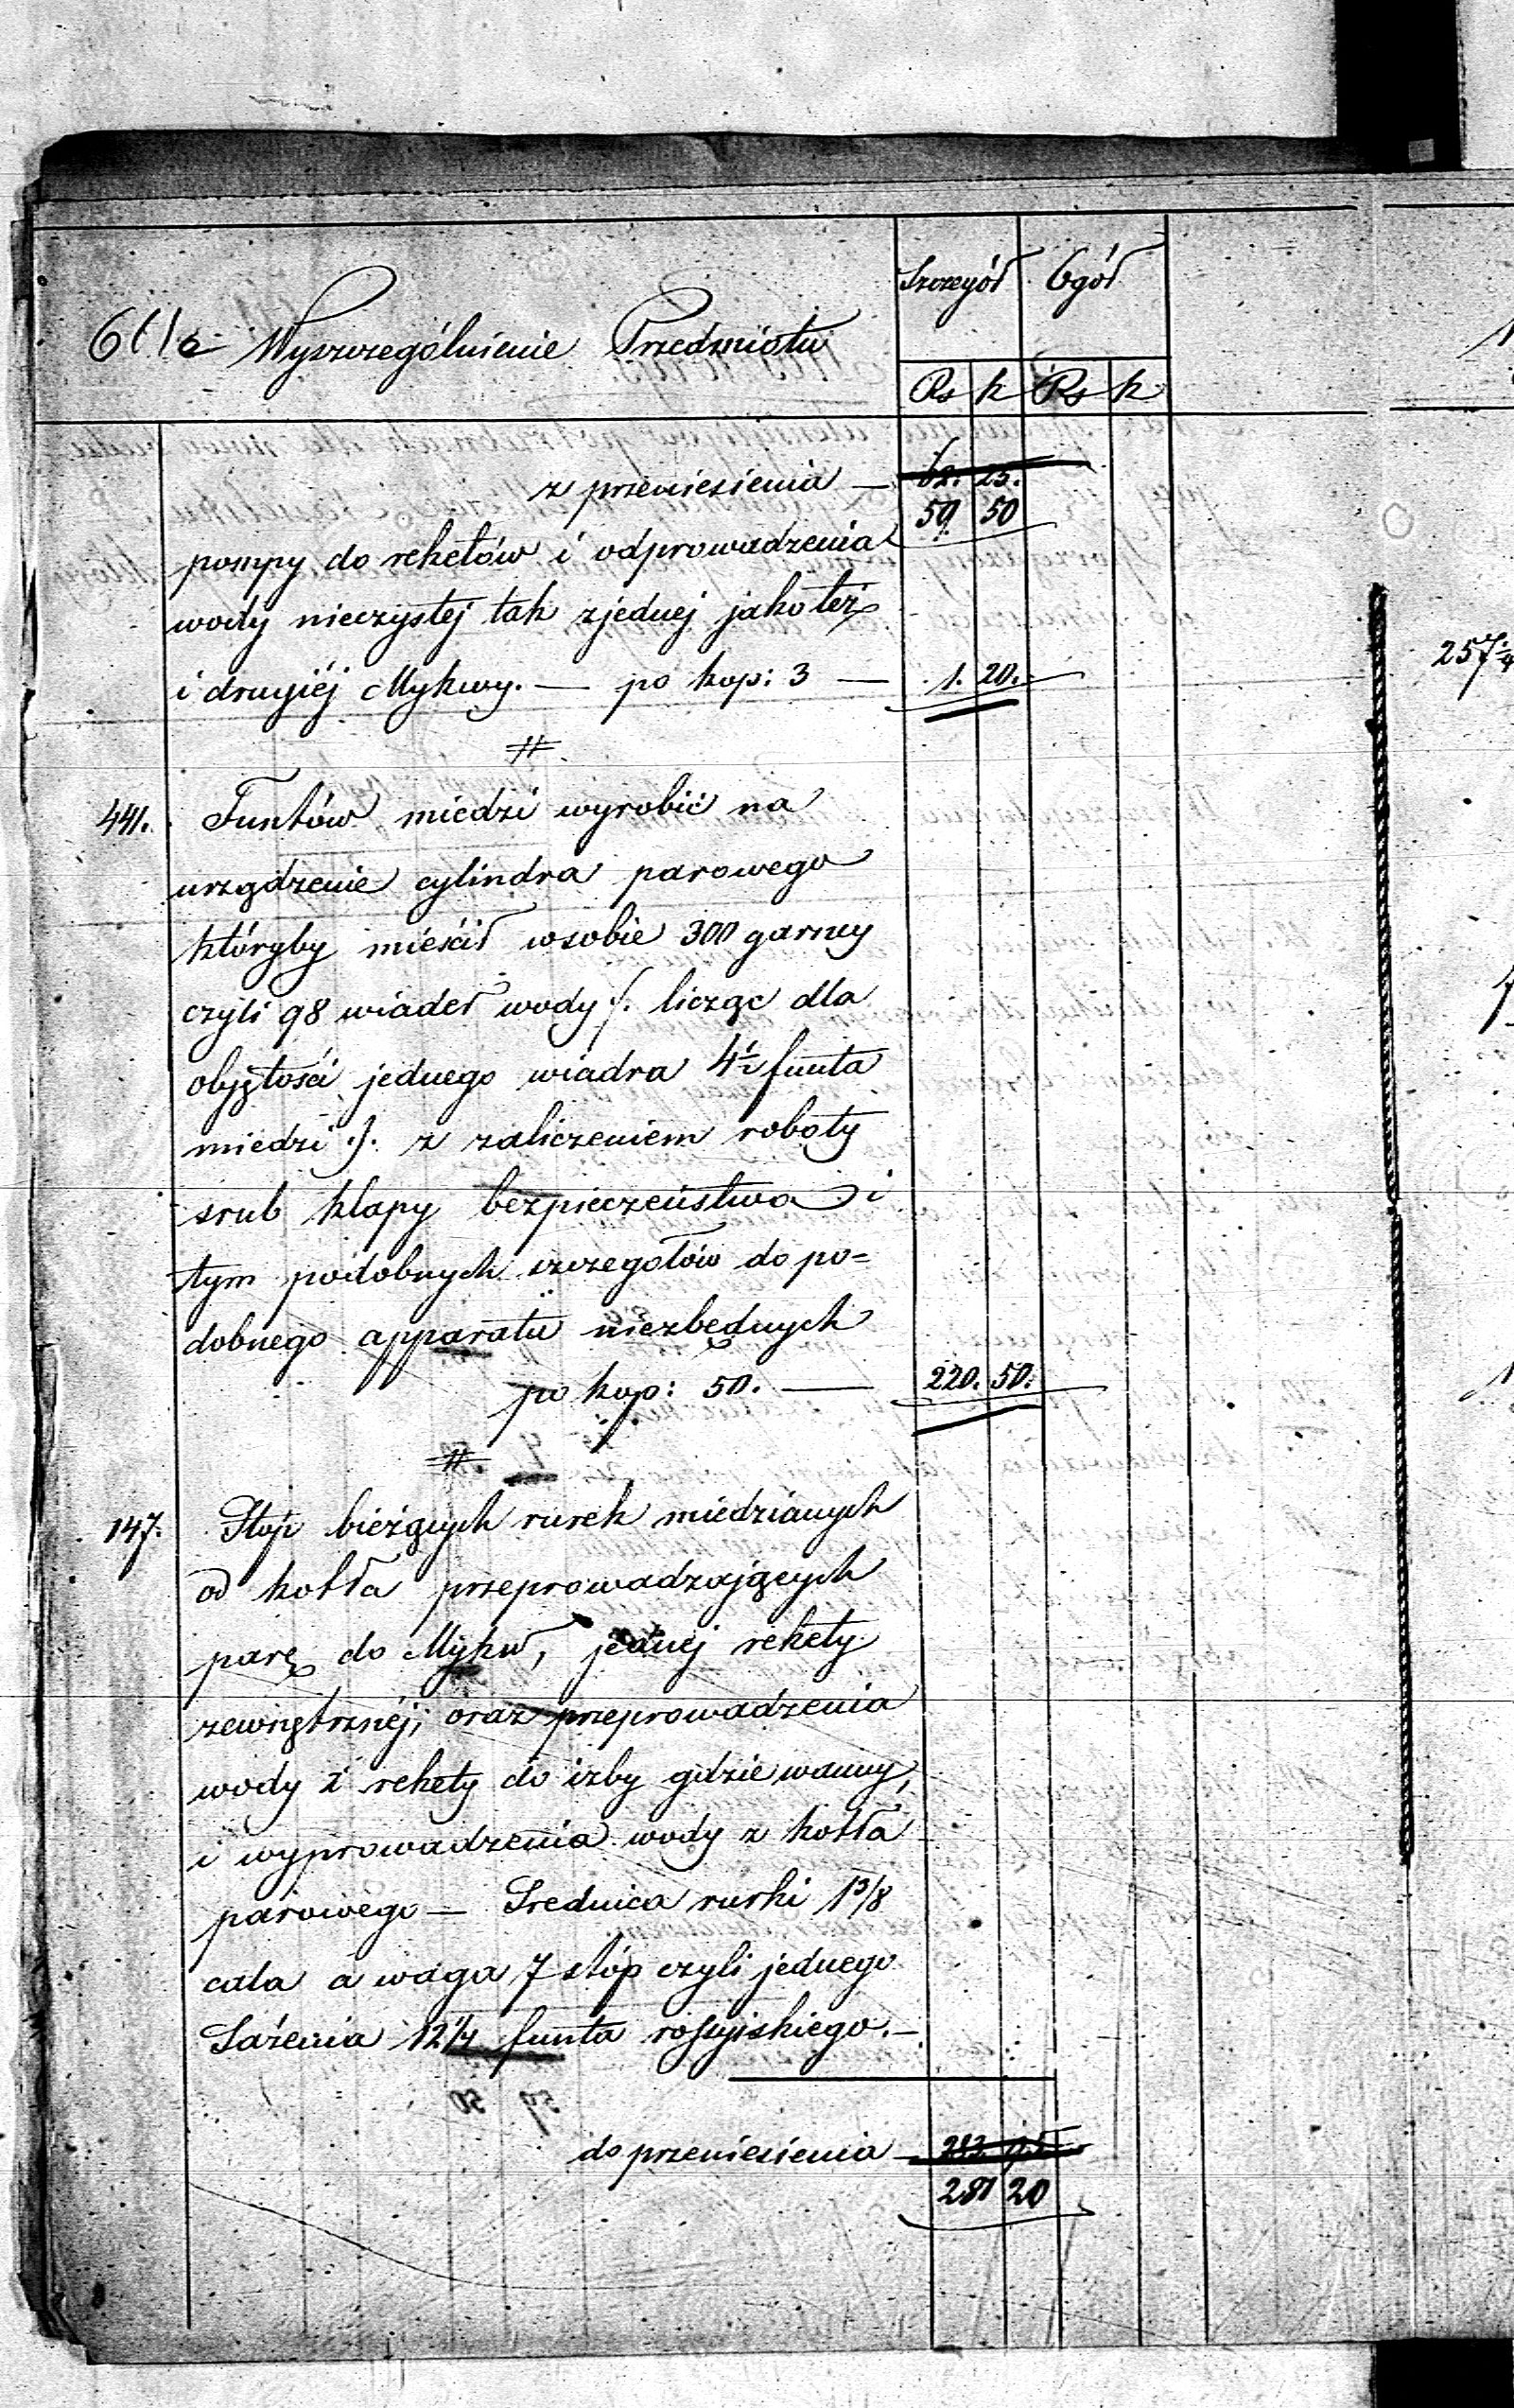 Szczegół Ogół
Wyszczególnienie Przedmiotu
Rs k Rs k
z przeniesienia — 62. 25.
59 50
pompy do reketów i odprowadzenia
wody nieczystej tak zjednej jako też
i drugiéj Mykwy. — po kop: 3 — 1. 20.
#
441. Funtów miedzi wyrobić na
urządzenie cylindra parowego
któryby mieścił wsobie 300 garncy
czyli 98 wiader wody /. licząc dla
objętości jednego wiadra 4½ funta
miedzi ./. z zaliczeniem roboty
srub klapy bezpieczeństwa i
tym podobnych szczegołów do po=
dobnego apparatu niezbędnych
po kop: 50. — 220. 50.
#
147. Stop bieżących rurek miedzianych
od kotła przeprowadzających
parę do Mykw, jednej rekety
zewnętrznéj, oraz przeprowadzenia
wody z rekety do izby gdzie wanny,
i wyprowadzenia wody z kotła
parowego — Srednica rurki 1 3/8
cala a waga 7 stóp czyli jednego
Sażenia 12 1/4 funta rossyiskiego. —
do przeniesienia —
281 20
257